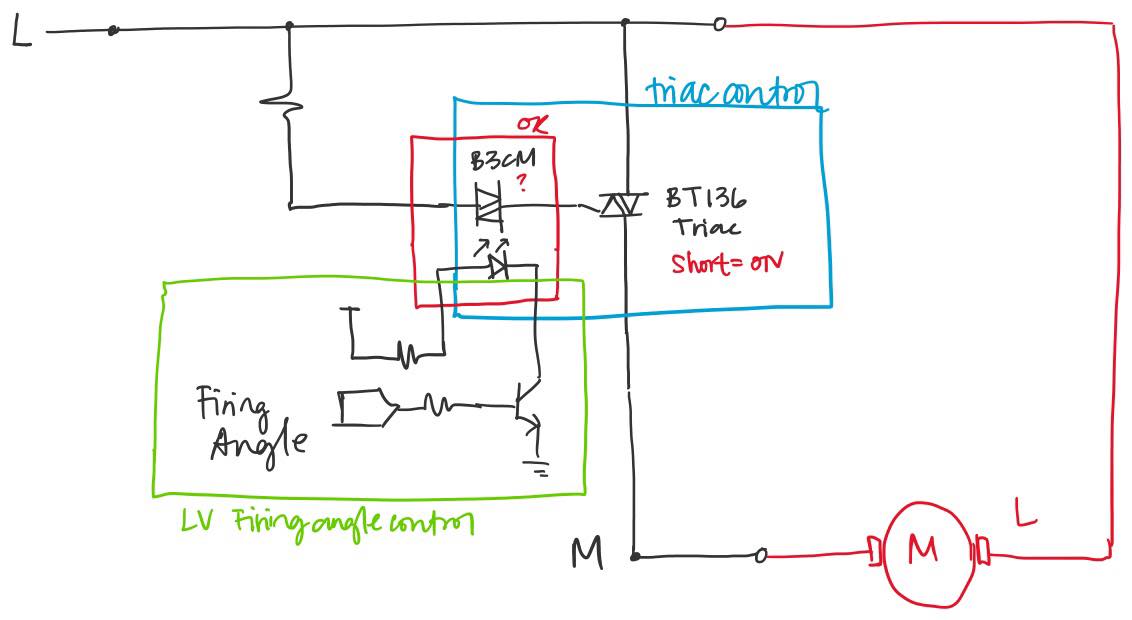 L
triac control
OK
B3CM
?
BT136
Triac
Short = ON
Firing
Angle
LV Firing angle control
M
M
L